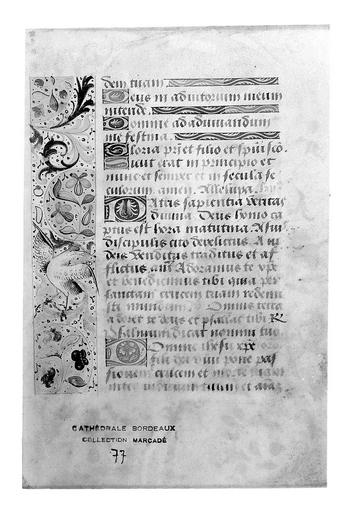 dem tuam
Deus in adiutorium meum
intende
Domine ad adiuuandum
me festina
Gloria pr̃i et filio et spũi sco.
Sicut erat in principio et
nunc et semper et in secula se
culorum amen. Alleluya.
Patris sapientia veritas
diuina Deus homo ca
ptus est hora matutina A suis
discipulis cito derelictus A iu
deis venditus traditus et af
flictus Adoramus te xp̃e
et benedicimus tibi quia per
sanctam crucem tuam redemi
sti mundum. Omnis terra
adoret te deus et psallat tibi
Psalmum dicat nomini tuo
Domine ihesu xp̃e
fili dei viui pone pas
sionem crucem et mortem
inter iudicium et
CATHÉDRALE BORDEAUX
COLLECTION MARCADÉ
77